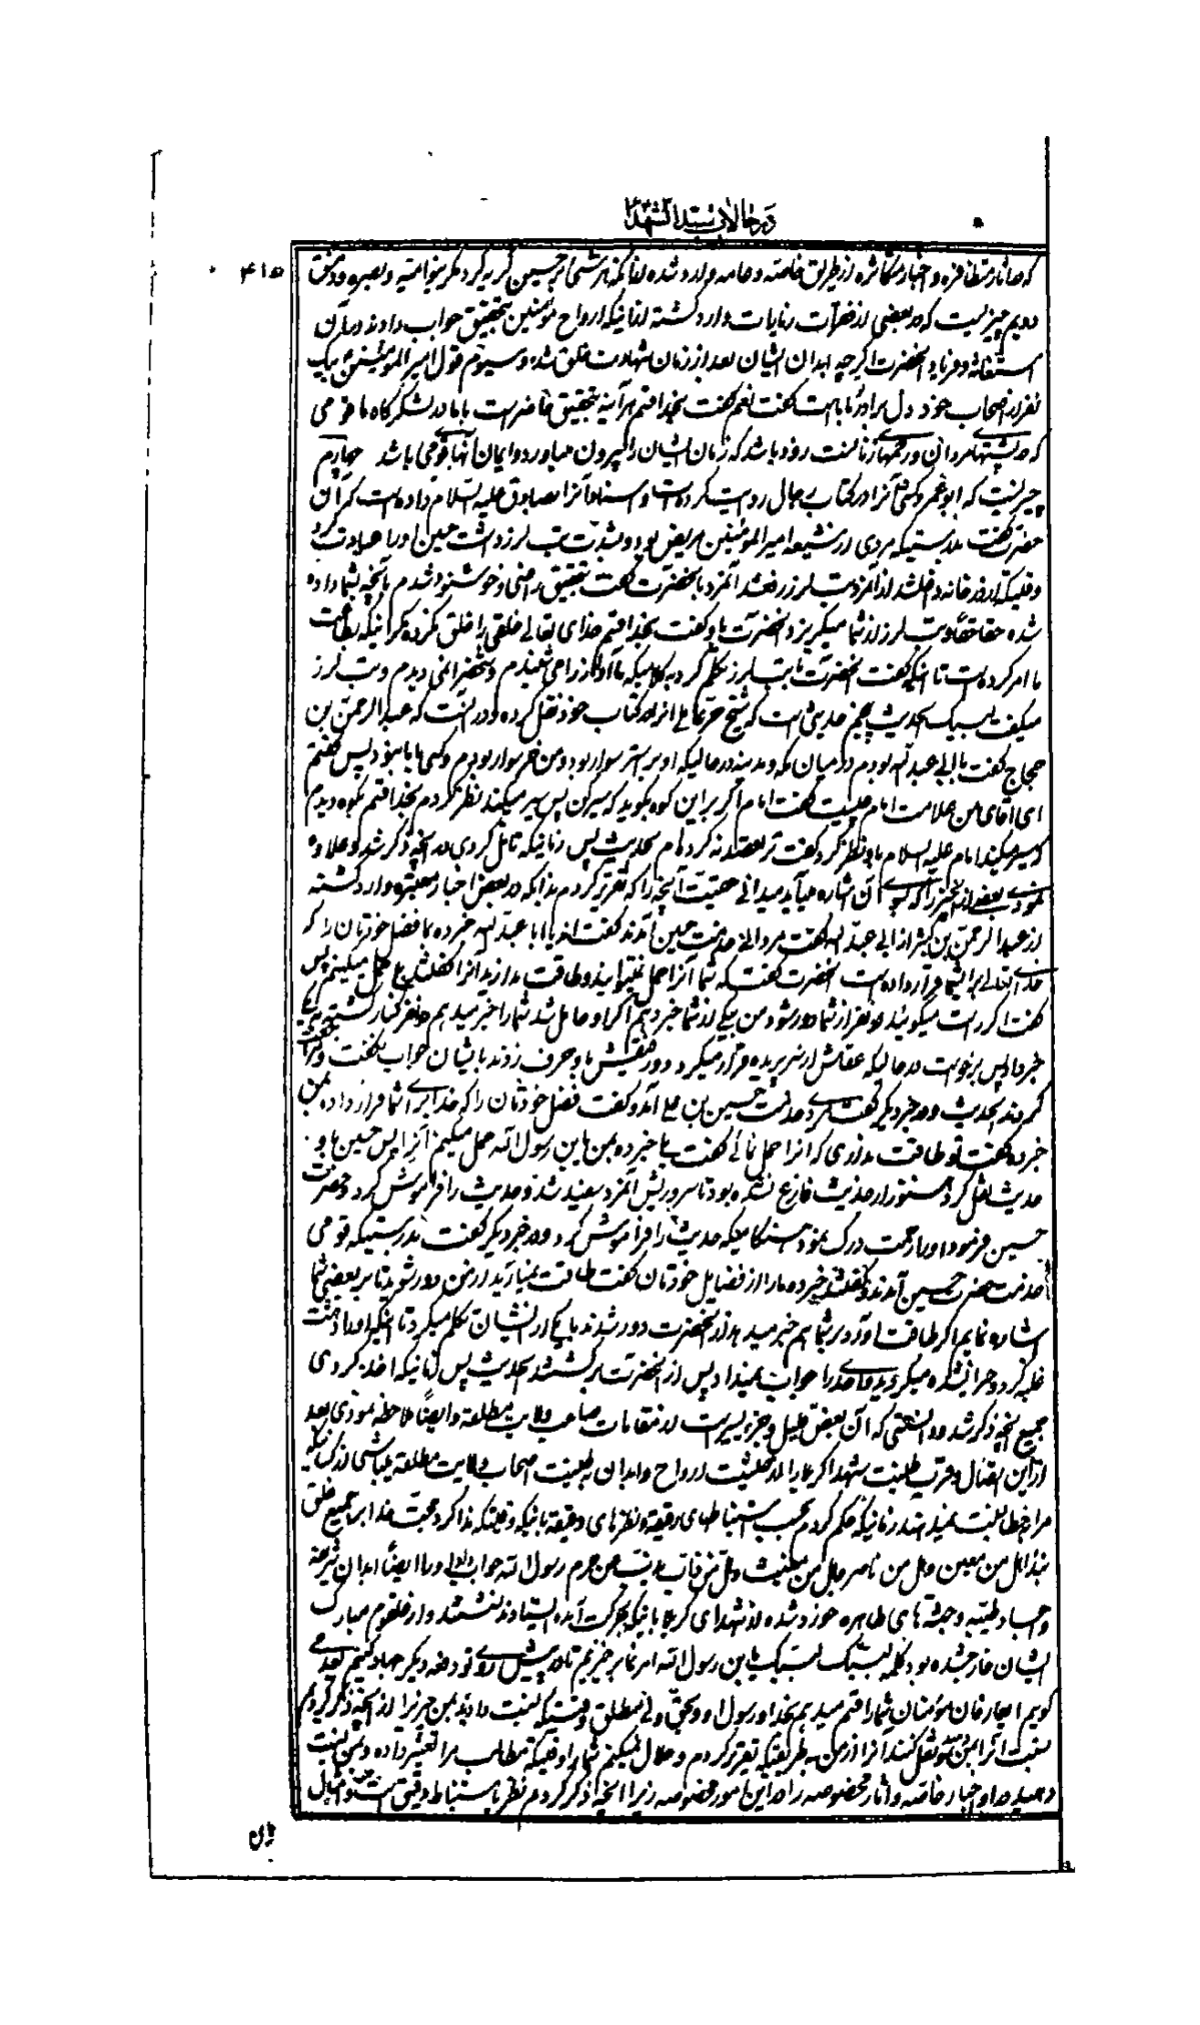 در حالات سید الشهدا
۴۱۵
که در آثار متظافره و اخبار متکاثره از طریق خاصه و عامه وارد شده از آنکه هر شئی بر حسین گریه کرد مگر بنو امیه و بصره و دمشق
دویم چیزیست که در بعضی از فقرات زیارات وارد گشته از آنکه ارواح مؤمنین بتحقیق جواب دادند در آن
استغاثه و فریاد آنحضرت اگر چه ابدان ایشان بعد از زمان شهادت خلق شده و سیوم قول امیر المؤمنین به یک
نفر از اصحاب خود دل برادر تو با ماست گفت نعم گفت بخدا قسم هر آینه بتحقیق حاضر است با ما در لشکرگاه ما قومی
که در پشتهای مردان و رحمهای زنانست زود باشد که زمان ایشان را بیرون میاورد و ایمان بآنها قوی باشد چهارم
چیزیست که ابو عمرو کشی آنرا در کتاب رجال روایت کرده است و اسناد آنرا بصادق علیه السلام داده است که آن
حضرت گفت بدرستیکه مردی از شیعه امیر المؤمنین مریض بود و بشدت تب لرز داشت حسین او را عیادت کرد
وقتیکه از در خانه داخل شد از آنمرد تب لرز رفع شد آنمرد بآنحضرت گفت بتحقیق راضی و خوشنود شدم بآنچه بشما داده
شده حقا حقا و تب لرز از شما میگریزد آنحضرت باو گفت بخدا قسم خدای تعالی خلقی را خلق نکرده مگر اینکه بطاعت
ما امر کرده است تا اینکه گفت آنحضرت با تب لرز تکلم کرد بکلامیکه ما آواز را می شنیدیم و شخص را نمی دیدیم و تب لرز
میگفت لبیک الحدیث پنجم حدیثی است که شیخ حر عاملی آنرا در کتاب خود نقل کرده و در آنست که عبد الرحمن بن
حجاج گفت با ابی عبد الله بودم در میان مکه و مدینه در حالیکه او بر استر سوار بود و من خر سوار بودم و کسی با ما نبود پس گفتم
ای آقای من علامت امام چیست گفت امام اگر بر این کوه بگوید که سیر کن پس سیر میکند نظر کردم بخدا قسم بکوه دیدم
که سیر میکند امام علیه السلام باو نظر کرد گفت ترا قصد نکرده ام الحدیث پس زمانیکه تامل کردی در آنچه ذکر شد و علاوه
نمودی بعضی از آنچیز را که بسوی آن اشاره میآید میدانی حقیت آنچه را که تقریر کردم بدانکه در بعض اخبار معتبره وارد گشته
از عبد الرحمن بن کثیر از ابی عبد الله گفت مردانی خدمت حسین آمدند گفتند یا ابا عبد الله خبر ده ما را فضل خودتان را که
خدای تعالی برای شما قرار داده است آنحضرت گفت که شما آنرا حمل نمیتوانید و طاقت ندارید آنرا گفتند بلی حمل میکنیم پس
گفت اگر راست میگوئید دو نفر از شما دور شود من بیکی از شما خبر دهم اگر او حامل شد شما را خبر میدهم دو نفر کنار گشتند بیکی
خبر داد پس برخواست در حالیکه عقلش از سر پریده و فرار میکرد دو رفیقش باو حرف زدند بایشان جواب نگفت و مراجعت
کردند الحدیث و در خبر دیگر گفت مردی خدمت حسین بن علی آمد و گفت فضل خودتان را که خدا برای شما قرار داده بمن
خبر ده گفت تو طاقت نداری که آنرا حمل نمائی گفت بلی خبر ده بمن یا بن رسول الله حمل میکنم آنرا پس حسین باو
حدیثی نقل کرد هنوز از حدیث فارغ نشده بود تا سر و ریش آنمرد سفید شد و حدیث را فراموش کرد و حضرت
حسین فرمود او را رحمت درک نمود هنگامیکه حدیث را فراموش کرد و در خبر دیگر گفت بدرستیکه قومی
خدمت حضرت حسین آمدند و گفتند خبر ده ما را از فضایل خودتان گفت طاقت نمیآرید از من دور شوید تا ببعضی شما
اشاره نمایم اگر طاقت آورد بر شما هم خبر میدهم از آنحضرت دور شدند با یکی از ایشان تکلم میکرد تا اینکه او را دهشت
غلبه کرد و حیران شده میگردید و احدی را جواب نمیداد پس از آنحضرت برگشتند الحدیث پس زمانیکه اخذ کردی
جمیع آنچه ذکر شد و دانستی که آن بعض قلیل و جزء یسیر است از مقامات صاحب ولایت مطلقه و ایضا ملاحظه نمودی بعد
از این اتصال و قرب طینت شهداء کربلا را از حیثیت ارواح و ابدان به طینت اصحاب ولایت مطلقه نمیباشی از کسانیکه
مرا بخطا نسبت میدهند زمانیکه حکم کردم بحسب استنباطهای رقیقه و نظرهای دقیقه بانیکه وقتیکه ندا کرد حجت خدا بر جمیع خلق
بندای هل من معین و هل من ناصر و هل من مغیث و هل من ذاب یذب عن حرم رسول الله جواب دادند او را ایضا ابدان شریفه
و اجساد طیبه و جثه های طاهره خورد شده از شهدای کربلا بانیکه بحرکت آمده ایستادند نشستند و از حلقوم مبارک
ایشان خارج شده بود کلمه لبیک لبیک یا بن رسول الله امر نما برخیزیم تا در پیش روی تو دفعه دیگر جهاد کنیم بعد
گویم ای عارفان مؤمنان شما را قسم میدهم بخدا و رسول او و بحق ولی مطلق وقتیکه نسبت دادید بمن چیزی را از آنچه ذکر کردیم
نسبت آنرا بمن نقل کنید آنرا از من به طریقیکه تقریر کردم و حلال نمیکنم شما را وقتیکه مطالب مرا تغییر داده و بمن نسبت
دهید و اخبار خاصه و آثار مخصوصه را در این امور مخصوصه زیرا آنچه ذکر کردم نظر باستنباط دقیق است و امثال
این